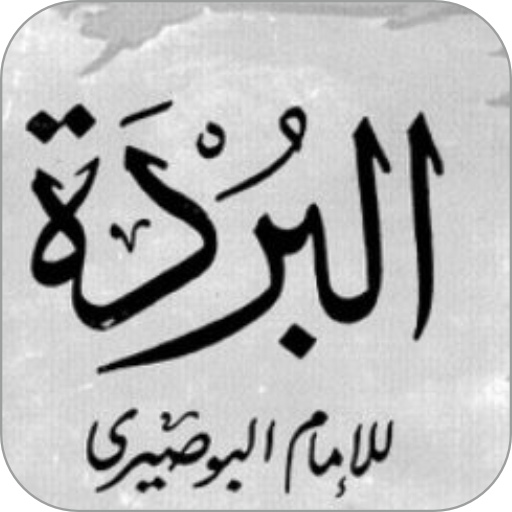 البُرْدَة
للإمام البوصيرى